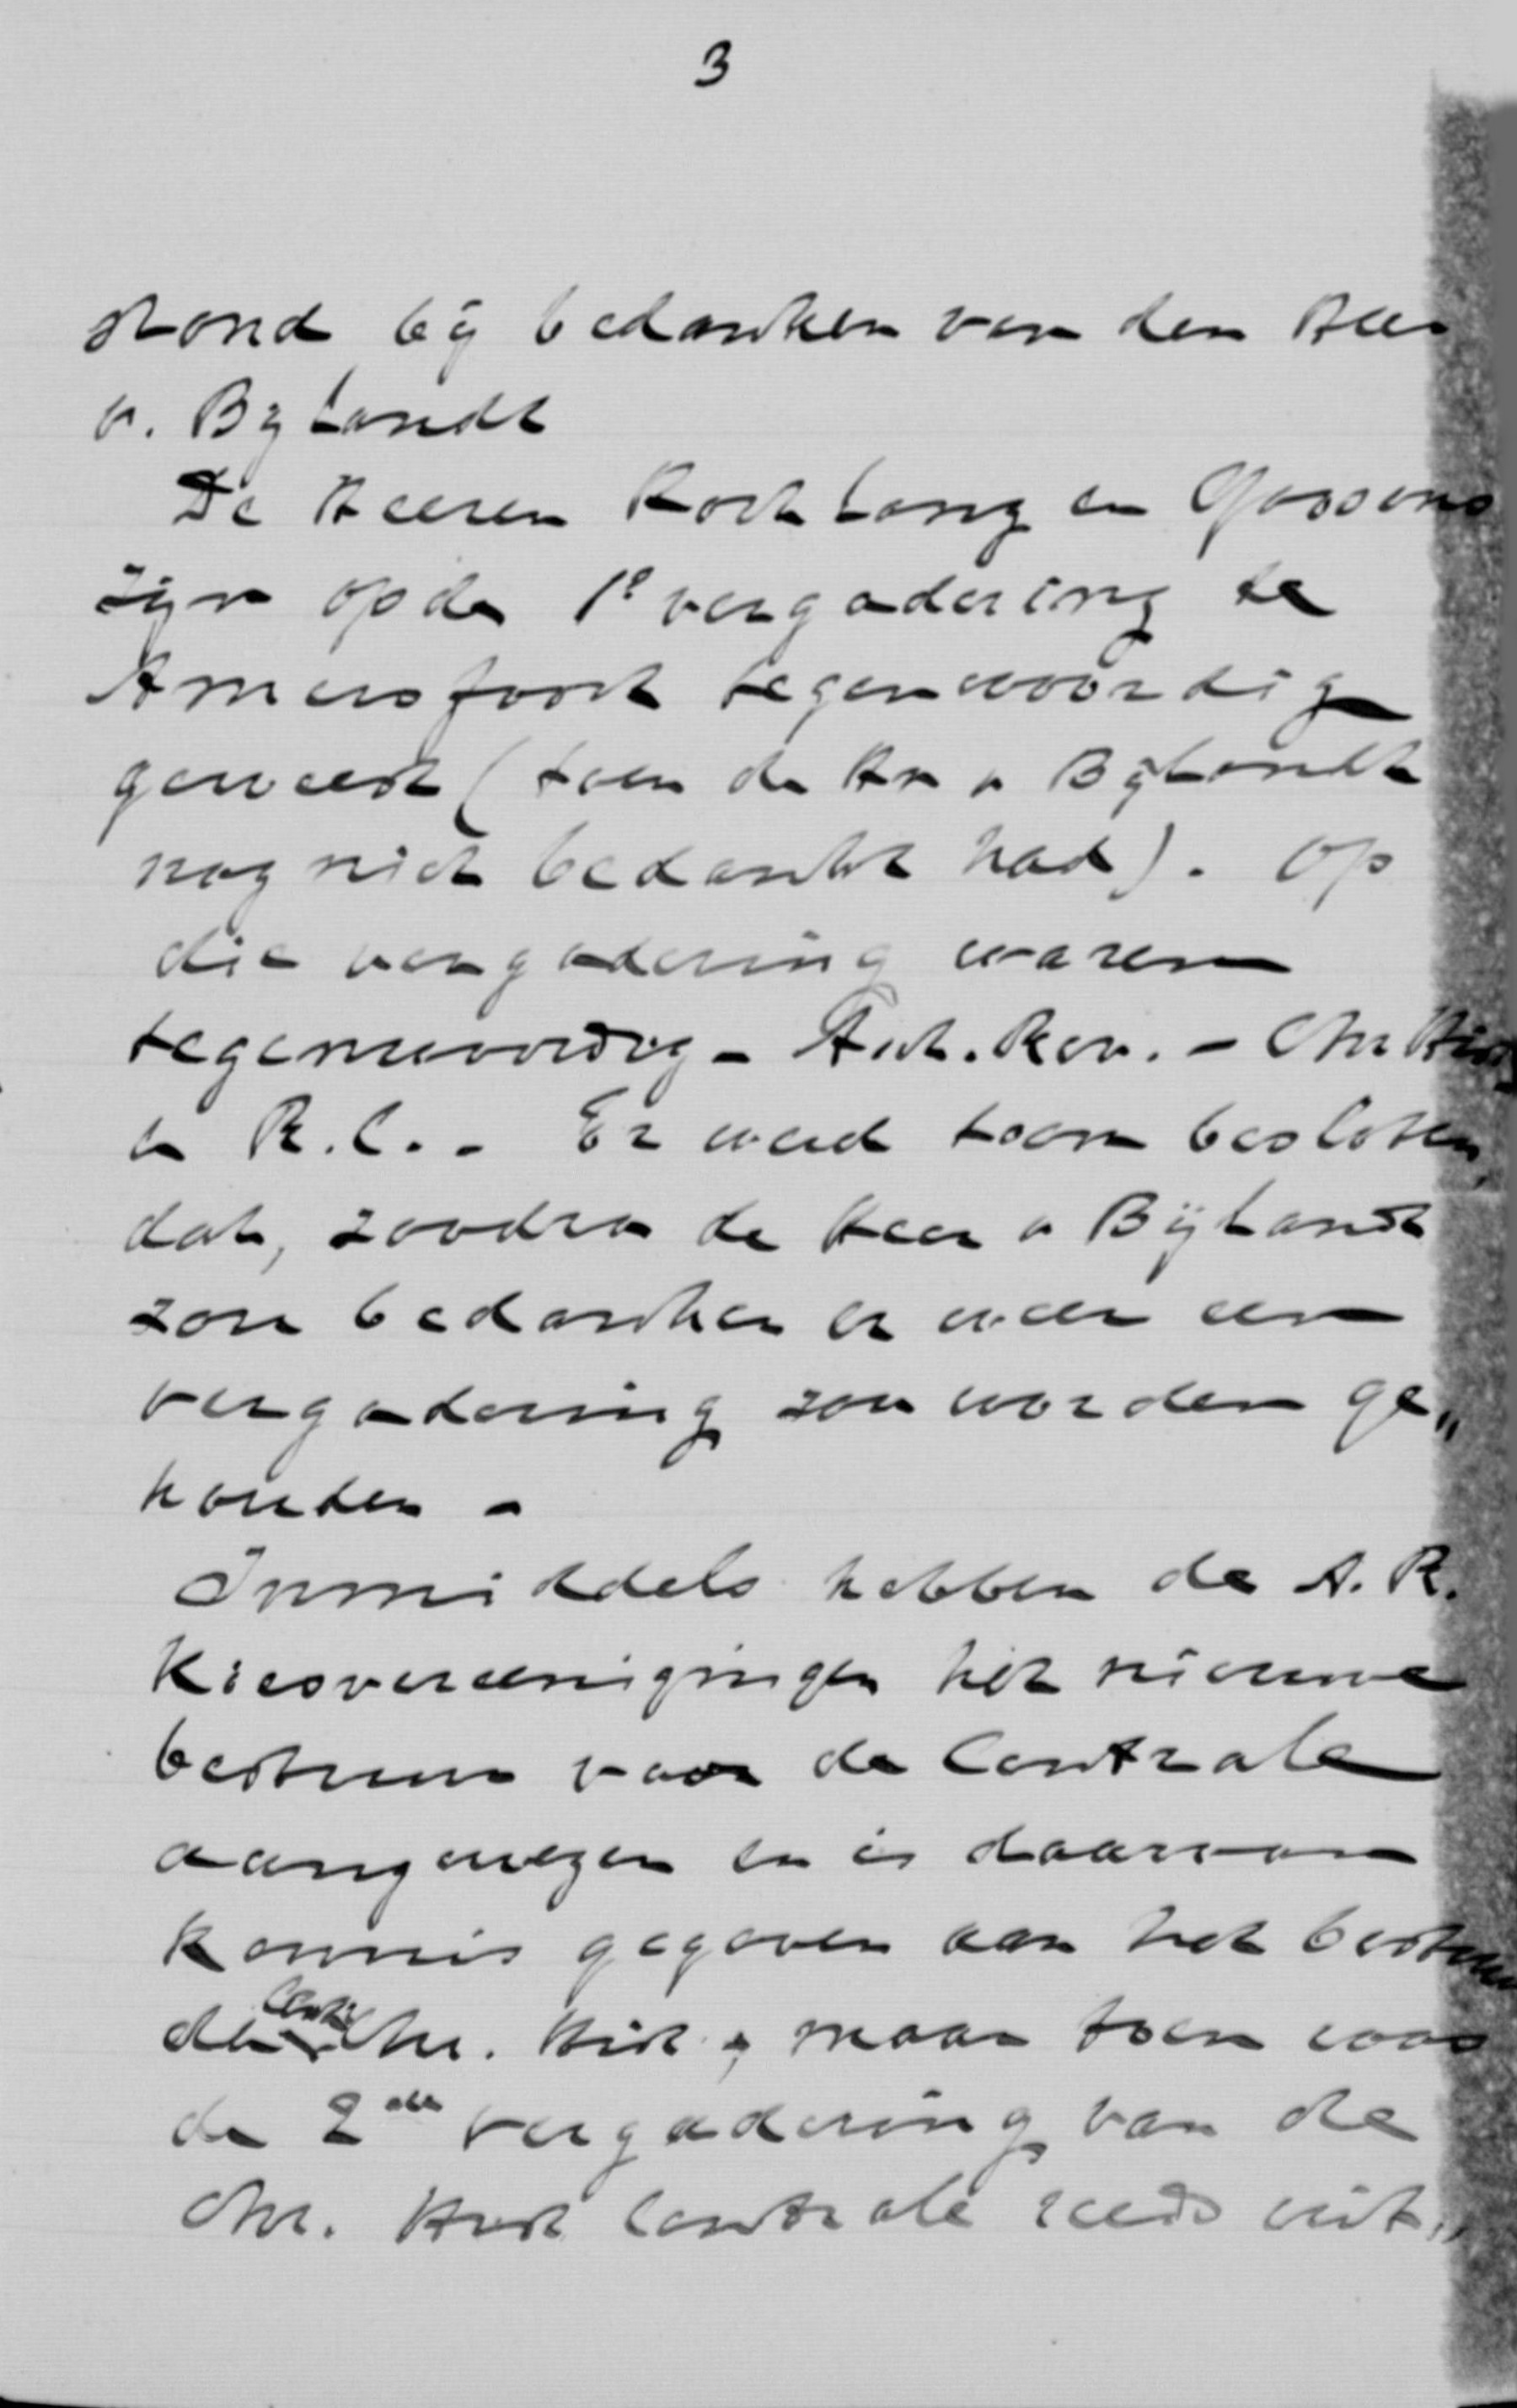 3
stond bij bedanken van den Heer
v. Bylandt
De Heeren Kock Lang en Goossens
zijn op de 1e vergadering te
Amersfoort tegenwoordig
geweest (toen de Hr v Bijlandt
nog niet bedankt had). Op
die vergadering waren
tegenwoordig - Ant. Rev. - Chr Hist
en R.C. - Er werd toen besloten,
dat, zoodra de Heer v Bijlandt
zou bedanken er weer een
vergadering zou worden ge„
houden -
Inmiddels hebben de A.R.
Kiesvereenigingen het nieuwe
bestuur voor de Centrale
aangewezen en is daarvan
kennis gegeven aan het bestuur
der Centr. Chr. Hist., maar toen was
de 2de vergadering van de
Chr. Hist Centrale reeds uit„